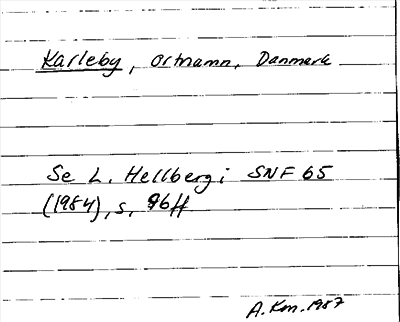 Karleby, ortnamn, Danmark
Se L. Hellberg i SNF 65
(1984), s. 96ff
A. Km. 1987